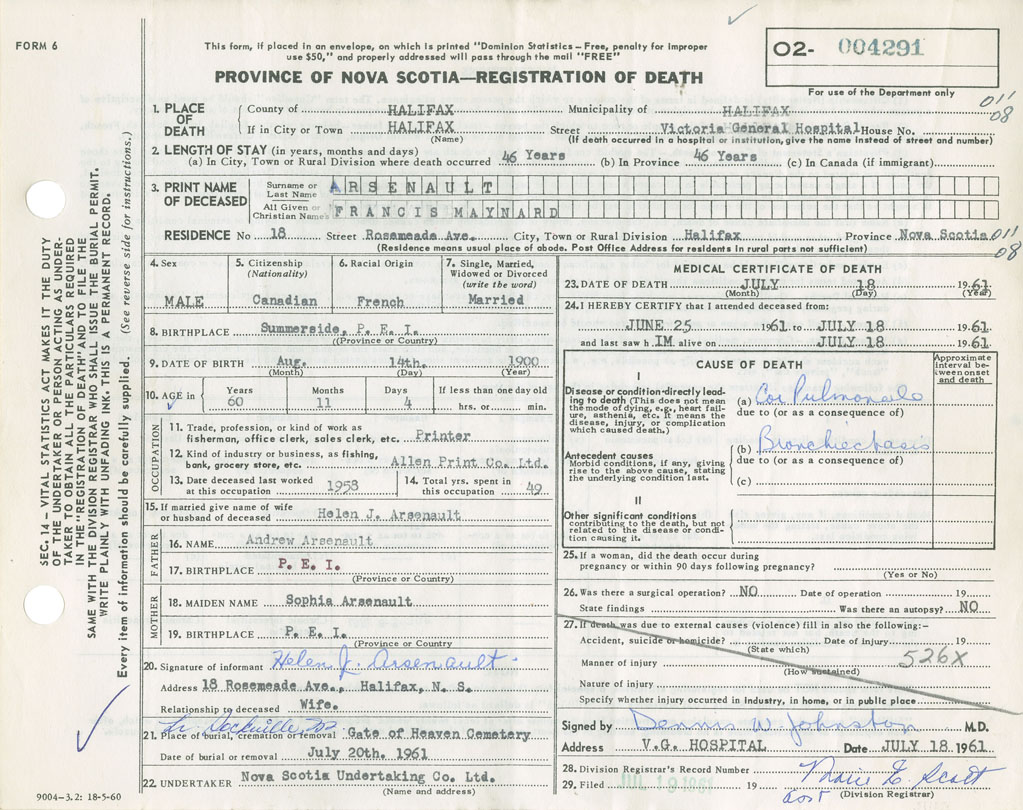 FORM 6
This form, if placed in an envelope, on which is printed "Dominion Statistics – Free, penalty for improper
use $50," and properly addressed will pass through the mail "FREE"
PROVINCE OF NOVA SCOTIA—REGISTRATION OF DEATH
02- 004291
For use of the Department only
011
08
1. PLACE OF DEATH
County of HALIFAX Municipality of HALIFAX
If in City or Town HALIFAX Street Victoria General Hospital House No.
(Name) (If death occurred in a hospital or institution, give the name instead of street and number)
2. LENGTH OF STAY (in years, months and days)
(a) In City, Town or Rural Division where death occurred 46 Years (b) In Province 46 Years (c) In Canada (if immigrant)
3. PRINT NAME OF DECEASED
Surname or Last Name ARSENAULT
All Given or Christian Names FRANCIS MAYNARD
RESIDENCE No 18 Street Rosemeade Ave. City, Town or Rural Division Halifax Province Nova Scotia 011
(Residence means usual place of abode. Post Office Address for residents in rural parts not sufficient) 08
4. Sex MALE
5. Citizenship (Nationality) Canadian
6. Racial Origin French
7. Single, Married, Widowed or Divorced (write the word) Married
8. BIRTHPLACE Summerside, P. E. I.
(Province or Country)
9. DATE OF BIRTH Aug. 14th. 1900
(Month) (Day) (Year)
10. AGE in Years 60 Months 11 Days 4 If less than one day old hrs. or min.
OCCUPATION
11. Trade, profession, or kind of work as
fisherman, office clerk, sales clerk, etc. Printer
12. Kind of industry or business, as fishing,
bank, grocery store, etc. Allen Print Co. Ltd.
13. Date deceased last worked at this occupation 1958
14. Total yrs. spent in this occupation 49
15. If married give name of wife
or husband of deceased Helen J. Arsenault
FATHER
16. NAME Andrew Arsenault
17. BIRTHPLACE P. E. I.
(Province or Country)
MOTHER
18. MAIDEN NAME Sophia Arsenault
19. BIRTHPLACE P. E. I.
(Province or Country)
20. Signature of informant Helen J. Arsenault
Address 18 Rosemeade Ave., Halifax, N. S.
Relationship to deceased Wife.
21. Place of burial, cremation or removal Gate of Heaven Cemetery
Date of burial or removal July 20th. 1961
22. UNDERTAKER Nova Scotia Undertaking Co. Ltd.
(Name and address)
MEDICAL CERTIFICATE OF DEATH
23. DATE OF DEATH JULY 18 1961
(Month) (Day) (Year)
24. I HEREBY CERTIFY that I attended deceased from:
JUNE 25 1961 to JULY 18 1961
and last saw h IM alive on JULY 18 1961
CAUSE OF DEATH
Approximate interval between onset and death
I
Disease or condition directly leading to death (This does not mean the mode of dying, e.g., heart failure, asthenia, etc. It means the disease, injury, or complication which caused death.)
(a) Cor Pulmonale
due to (or as a consequence of)
Antecedent causes
Morbid conditions, if any, giving rise to the above cause, stating the underlying condition last.
(b) Bronchiectasis
due to (or as a consequence of)
(c)
II
Other significant conditions
contributing to the death, but not related to the disease or condition causing it.
25. If a woman, did the death occur during
pregnancy or within 90 days following pregnancy?
(Yes or No)
26. Was there a surgical operation? NO Date of operation 19
State findings Was there an autopsy? NO
27. If death was due to external causes (violence) fill in also the following:–
Accident, suicide or homicide? Date of injury 19
(State which)
526X
Manner of injury
(How sustained)
Nature of injury
Specify whether injury occurred in industry, in home, or in public place
Signed by Dennis W Johnston M.D.
Address V.G. HOSPITAL Date JULY 18 1961
28. Division Registrar's Record Number
29. Filed JUL 19 1961 19
(Division Registrar)
SEC. 14 – VITAL STATISTICS ACT MAKES IT THE DUTY
OF THE UNDERTAKER OR PERSON ACTING AS UNDER-
TAKER TO OBTAIN ALL THE PARTICULARS REQUIRED
IN THE "REGISTRATION OF DEATH" AND TO FILE THE
SAME WITH THE DIVISION REGISTRAR WHO SHALL ISSUE THE BURIAL PERMIT.
WRITE PLAINLY WITH UNFADING INK. THIS IS A PERMANENT RECORD.
Every item of information should be carefully supplied. (See reverse side for instructions.)
9004-3.2: 18-5-60